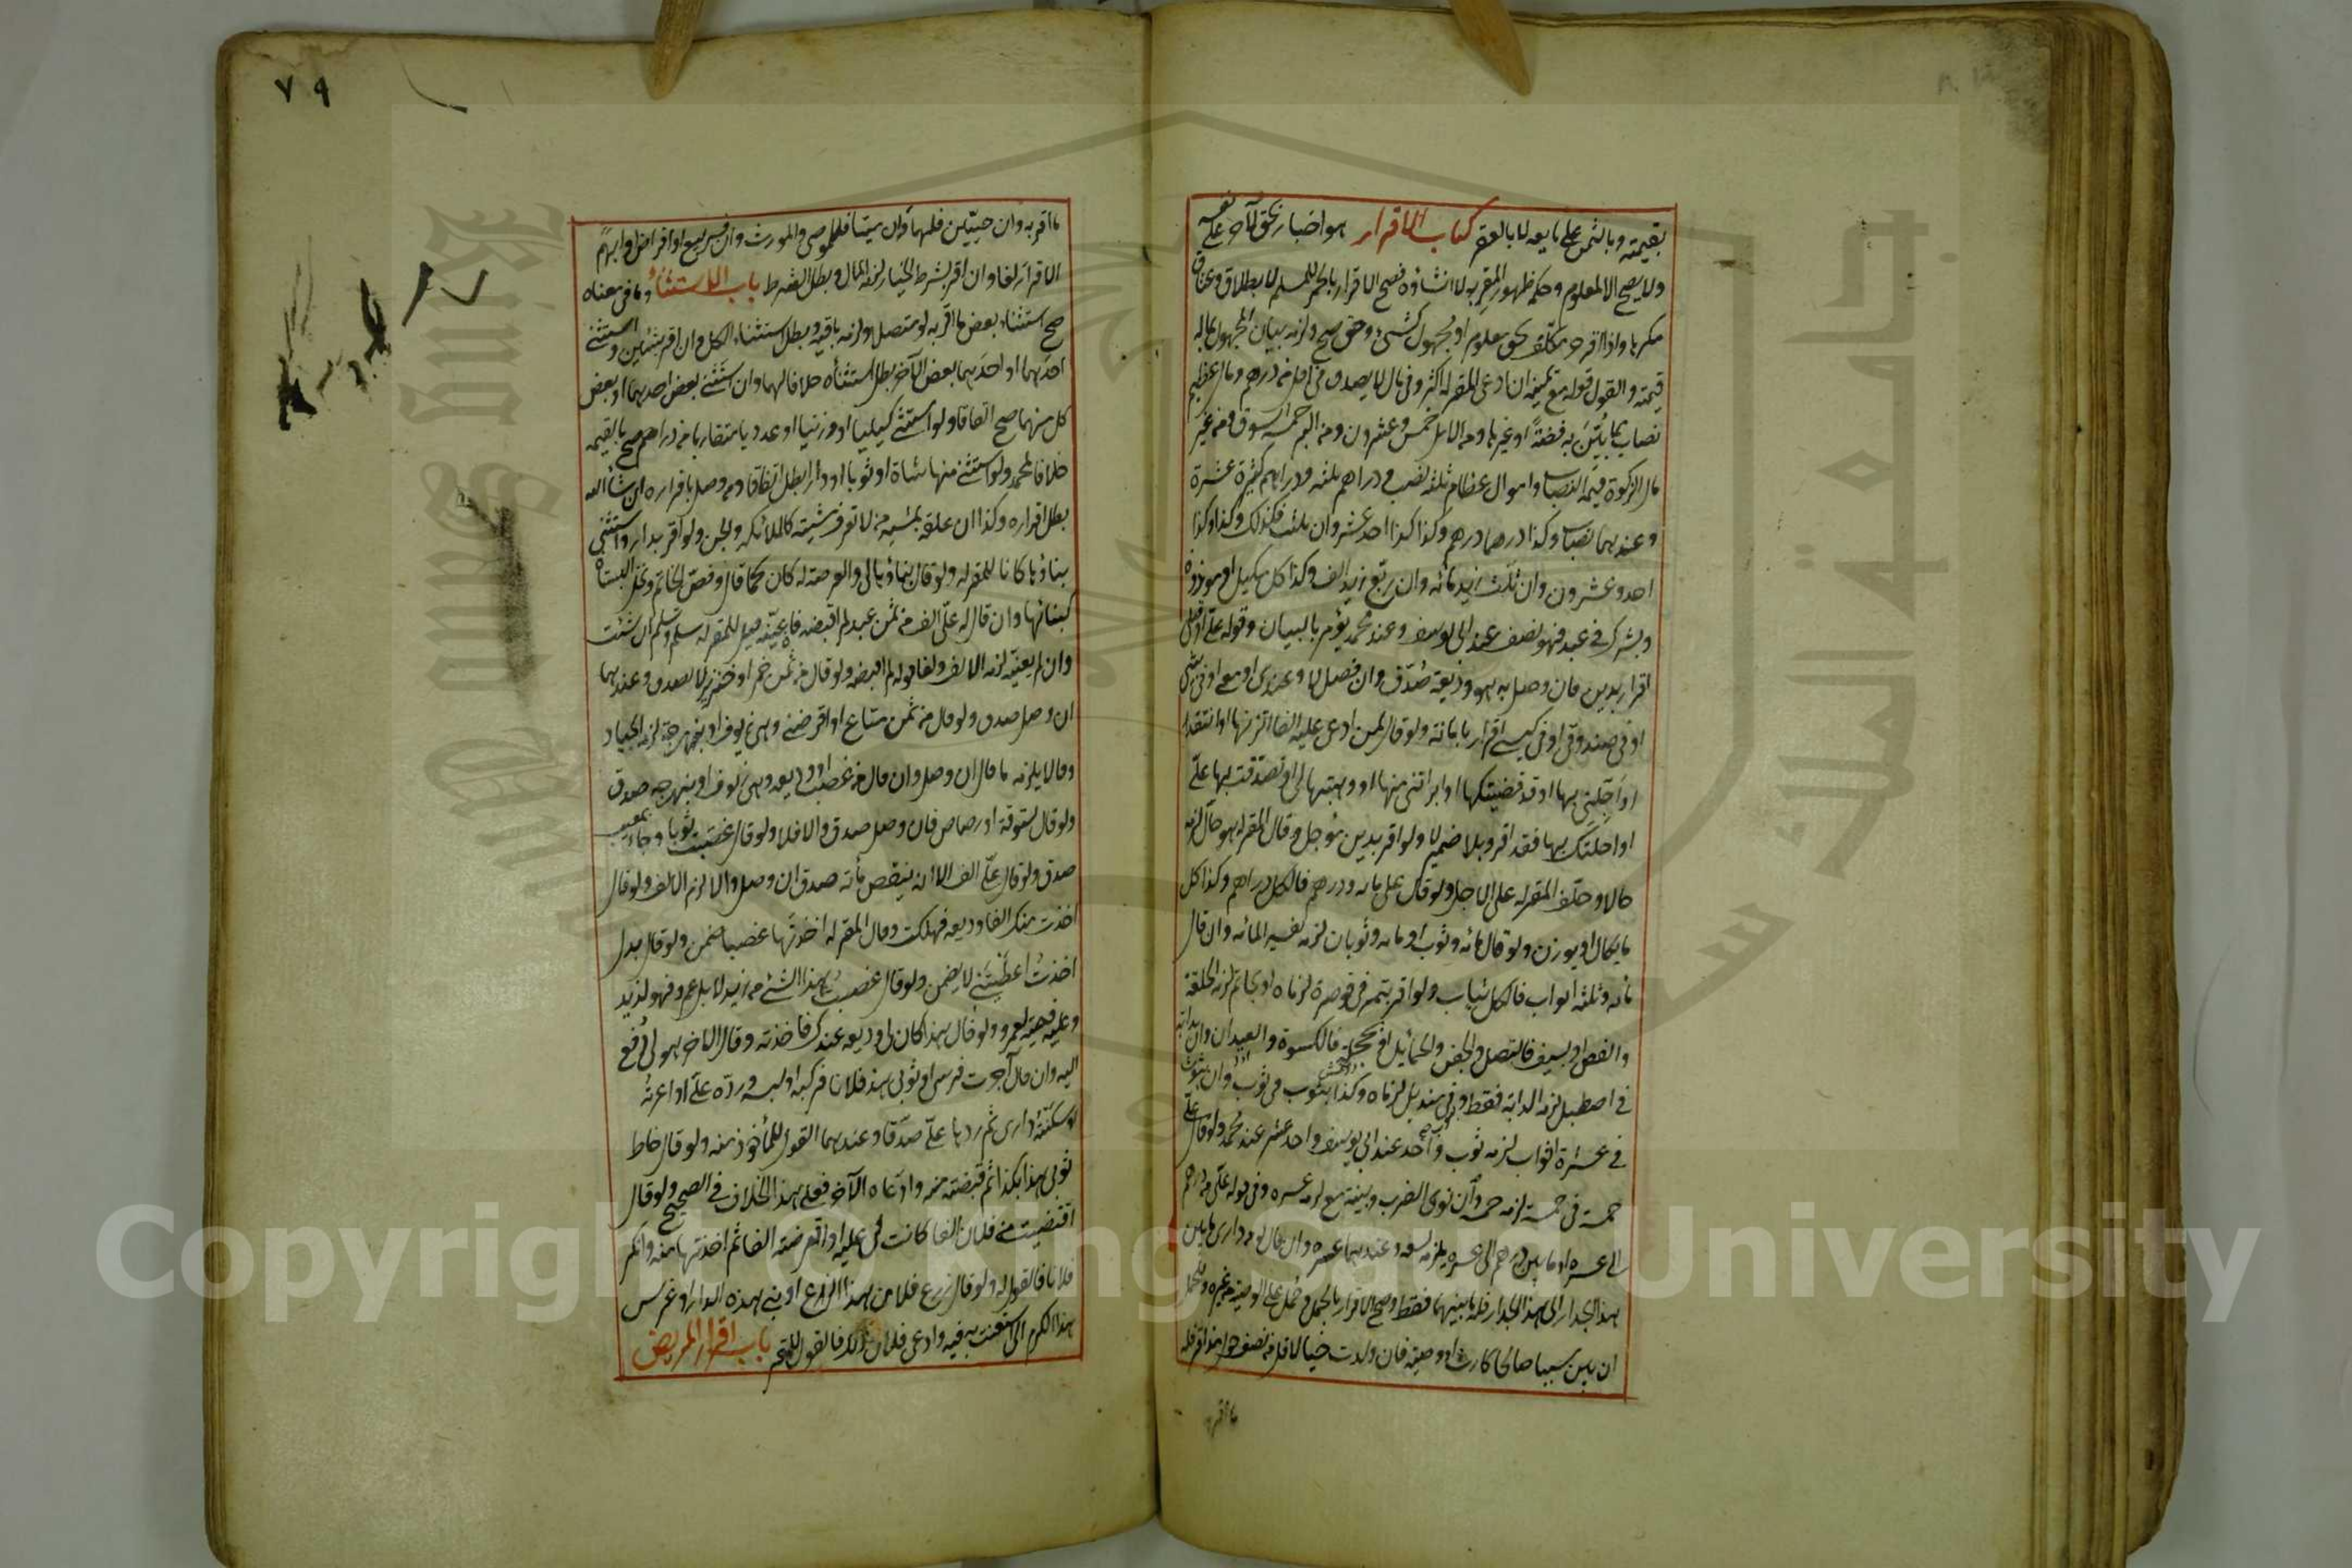 بقيمته وبالثمن على بايعه لا بالعقر كتاب الاقرار هو اخبار بحق لآخر على نفسه
ولا يصح الا لمعلوم وحكمه ظهور المقر به لا انشاؤه فصح الاقرار بالخمر للمسلم لا بطلاق وعتاق
مكرها واذا اقر حر مكلف بحق معلوم او مجهول كشئ وحق صح ولزمه بيان المجهول بماله
قيمة والقول قوله مع يمينه ان ادعى المقر له اكثر وفي مال لا يصدق في اقل من درهم ومال عظيم
نصاب مما بين به فضة او غيرها ومن الابل خمس وعشرون ومن البر خمسة اوسق ومن غير
مال الزكوة قيمة النصاب واموال عظام ثلثة نصب ودراهم ثلثة ودراهم كثيرة عشرة
وعندهما نصاب وكذا درهما درهم وكذا كذا احد عشر وان ثلث فكذلك وكذا وكذا
احد وعشرون وان ثلث زيد مائة وان ربع زيد الف وكذا كل مكيل او موزون
وبشرك في عبد فهو نصف عند ابي يوسف وعند محمد يؤمر بالبيان وقوله علي او قبلي
اقرار بدين فان وصل به هو وديعة صدق وان فصل لا وعندي او معي او في بيتي
او في صندوقي او في كيسي اقرار بامانة ولو قال لمن ادعى عليه الفا اتزنها او انتقدها
او اجلني بها او قد قضيتكها او ابرأتني منها او وهبتها لي او تصدقت بها علي
او احلتك بها فقد اقر وبلا ضمير لا ولو اقر بدين مؤجل وقال المقر له هو حال لزمه
حالا وحلف المقر له على الاجل ولو قال علي مائة ودرهم فالكل دراهم وكذا كل
ما يكال او يوزن ولو قال مائة وثوب او مائة وثوبان لزمه تفسير المائة وان قال
مائة وثلثة اثواب فالكل ثياب ولو اقر بتمر في قوصرة لزماه او بخاتم لزمه الحلقة
والفص او بسيف فالنصل والجفن والحمائل او بحجلة فالكسوة والعيدان وان بدابة
في اصطبل لزمه الدابة فقط او في منديل لزماه وكذا بثوب في ثوب وان بثوب
في عشرة اثواب لزمه ثوب واحد عند ابي يوسف واحد عشر عند محمد ولو قال علي
خمسة في خمسة لزمه خمسة وان نوى الضرب وبنية مع لزمه عشرة وفي قوله علي من درهم
الى عشرة او ما بين درهم الى عشرة يلزمه تسعة وعندهما عشرة وان قال له من داري ما بين
هذا الجدار الى هذا الجدار فله ما بينهما فقط وصح الاقرار بالحمل وحمل على الوصية من غيره وللحمل
ان بين سببا صالحا كارث او وصية فان ولدت حيا لاقل من نصف حول مذ اقر فله
ما اقر به
٧٩
ما اقر به وان حيين فلهما وان ميتا فللموصي والمورث وان فسر ببيع او اقراض او ابهم
الاقرار لغا وان اقر بشرط الخيار لزمه المال وبطل الشرط باب الاستثناء وما في معناه
صح استثناء بعض ما اقر به لو متصلا ولزمه باقيه وبطل استثناء الكل وان اقر بشيئين واستثنى
احدهما او احدهما وبعض الآخر بطل استثناؤه خلافا لهما وان استثنى بعض احدهما او بعض
كل منهما صح اتفاقا ولو استثنى كيليا او وزنيا او عدديا متقاربا من دراهم صح بالقيمة
خلافا لمحمد ولو استثنى منها شاة او ثوبا او دارا بطل اتفاقا ومن وصل باقراره ان شاء الله
بطل اقراره وكذا ان علقه بمشية من لا تعرف مشيته كالملائكة والجن ولو اقر بدار واستثنى
بناؤها كانا للمقر له ولو قال بناؤها لي والعرصة له كان كما قال وفص الخاتم ونخل البستان
كبنائها وان قال له علي الف من ثمن عبد لم اقبضه فان عينه قيل للمقر له سلم وتسلم ان شئت
وان لم يعينه لزمه الالف ولغا قوله لم اقبضه ولو قال من ثمن خمر او خنزير لا يصدق وعندهما
ان وصل صدق ولو قال من ثمن متاع او اقرضني وهي زيوف او نبهرجة لزمه الجياد
وقالا يلزمه ما قال ان وصل وان قال من غصب او وديعة وهي زيوف او نبهرجة صدق
ولو قال ستوقة او رصاص فان وصل صدق والا فلا ولو قال غصبت ثوبا وجاء بمعيب
صدق ولو قال علي الف الا انه ينقص مائة صدق ان وصل والا لزم الالف ولو قال
اخذت منك الفا وديعة فهلكت وقال المقر له اخذتها غصبا ضمن ولو قال بدل
اخذت اعطيتني لا يضمن ولو قال غصبت هذا الشئ من زيد لا بل عمرو فهو لزيد
وعليه قيمته لعمرو ولو قال هذا كان لي وديعة عندك فاخذته وقال الآخر هو لي دفع
اليه وان قال آجرت فرسي او ثوبي هذا فلانا فركبه او لبسه ورده علي او اعرته
او سكنته داري ثم ردها علي صدق وعندهما القول للمأخوذ منه ولو قال خاط
ثوبي هذا بكذا ثم قبضته منه وادعاه الآخر فعلى هذا الخلاف في الصحيح ولو قال
اقتضيت من فلان الفا كانت لي عليه او اقرضته الفا ثم اخذتها منه وانكر
فلان فالقول له ولو قال زرع فلان هذا الزرع او بنى هذه الدار او غرس
هذا الكرم لي استعنت به فيه وادعى فلان ذلك فالقول للمقر باب اقرار المريض
Copyright © King Saud University